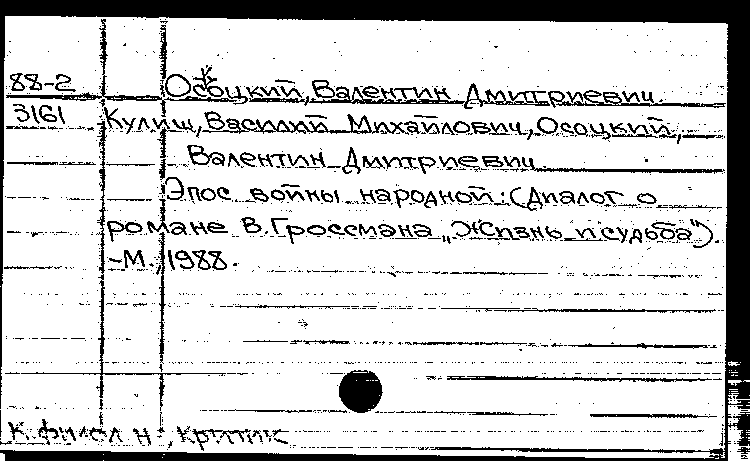 88-2 Осоцкий, Валентин Дмитриевич.
3161 Кулиш, Василий Михайлович, Осоцкий,
Валентин Дмитриевич.
Эпос войны народной: (Диалог о
романе В. Гроссмана „Жизнь и судьба").
-М., 1988.
К. филол. н., критик